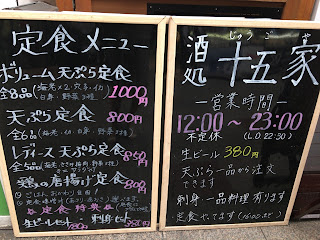 定食メニュー
ボリューム天ぷら定食
全8品(海老×2・穴子・イカ
白身・野菜3種) 1000円
天ぷら定食 800円
全6品
レディース天ぷら定食 850円
全5品
鶏の唐揚げ定食 800円
ごはん、おかわり自由!
☆定食特典☆
生ビールセット 刺身セット
酒処 十五家
じゅうごや
—営業時間—
12:00〜23:00
不定休 (L.O.22:30)
生ビール 380円
天ぷら一品から注文
できます
刺身・一品料理有ります
定食やってます(16:00まで)